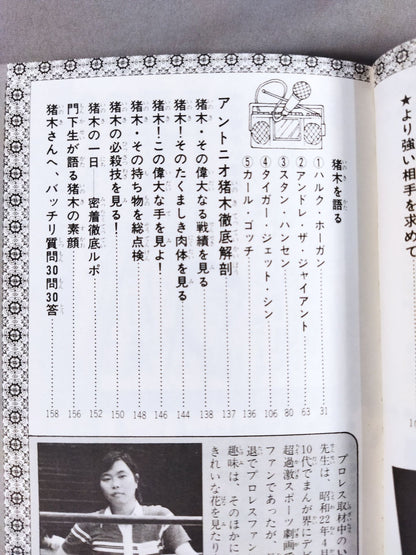 ★より強い相手を求めて
猪木を語る
①ハルク・ホーガン……31
②アンドレ・ザ・ジャイアント……63
③スタン・ハンセン……80
④タイガー・ジェット・シン……106
⑤カール・ゴッチ……136
アントニオ猪木徹底解剖……137
猪木・その偉大なる戦績を見る……138
猪木！そのたくましき肉体を見る……144
猪木！この偉大な手を見よ！……146
猪木・その持ち物を総点検……148
猪木の必殺技を見る！……150
猪木の一日──密着徹底ルポ……152
門下生が語る猪木の素顔……156
猪木さんへ、バッチリ質問30問30答……158
プロレス取材中の
先生は、昭和22年4月
10代でまんが界にデ
超過激スポーツ劇画
ファンであったが、
退でプロレスファン
趣味は、そのほかに
きれいな花を見たり